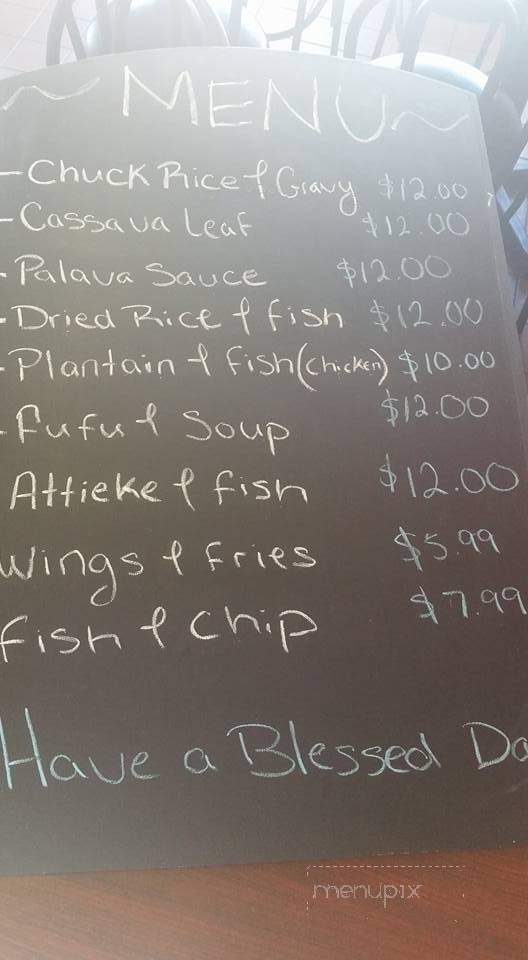 ~ MENU ~
- Chuck Rice & Gravy $12.00
- Cassava Leaf $12.00
- Palava Sauce $12.00
- Dried Rice & fish $12.00
- Plantain & fish (chicken) $10.00
- fufu & Soup $12.00
Attieke & fish $12.00
Wings & fries $5.99
fish & Chip $7.99
Have a Blessed Da
menupix